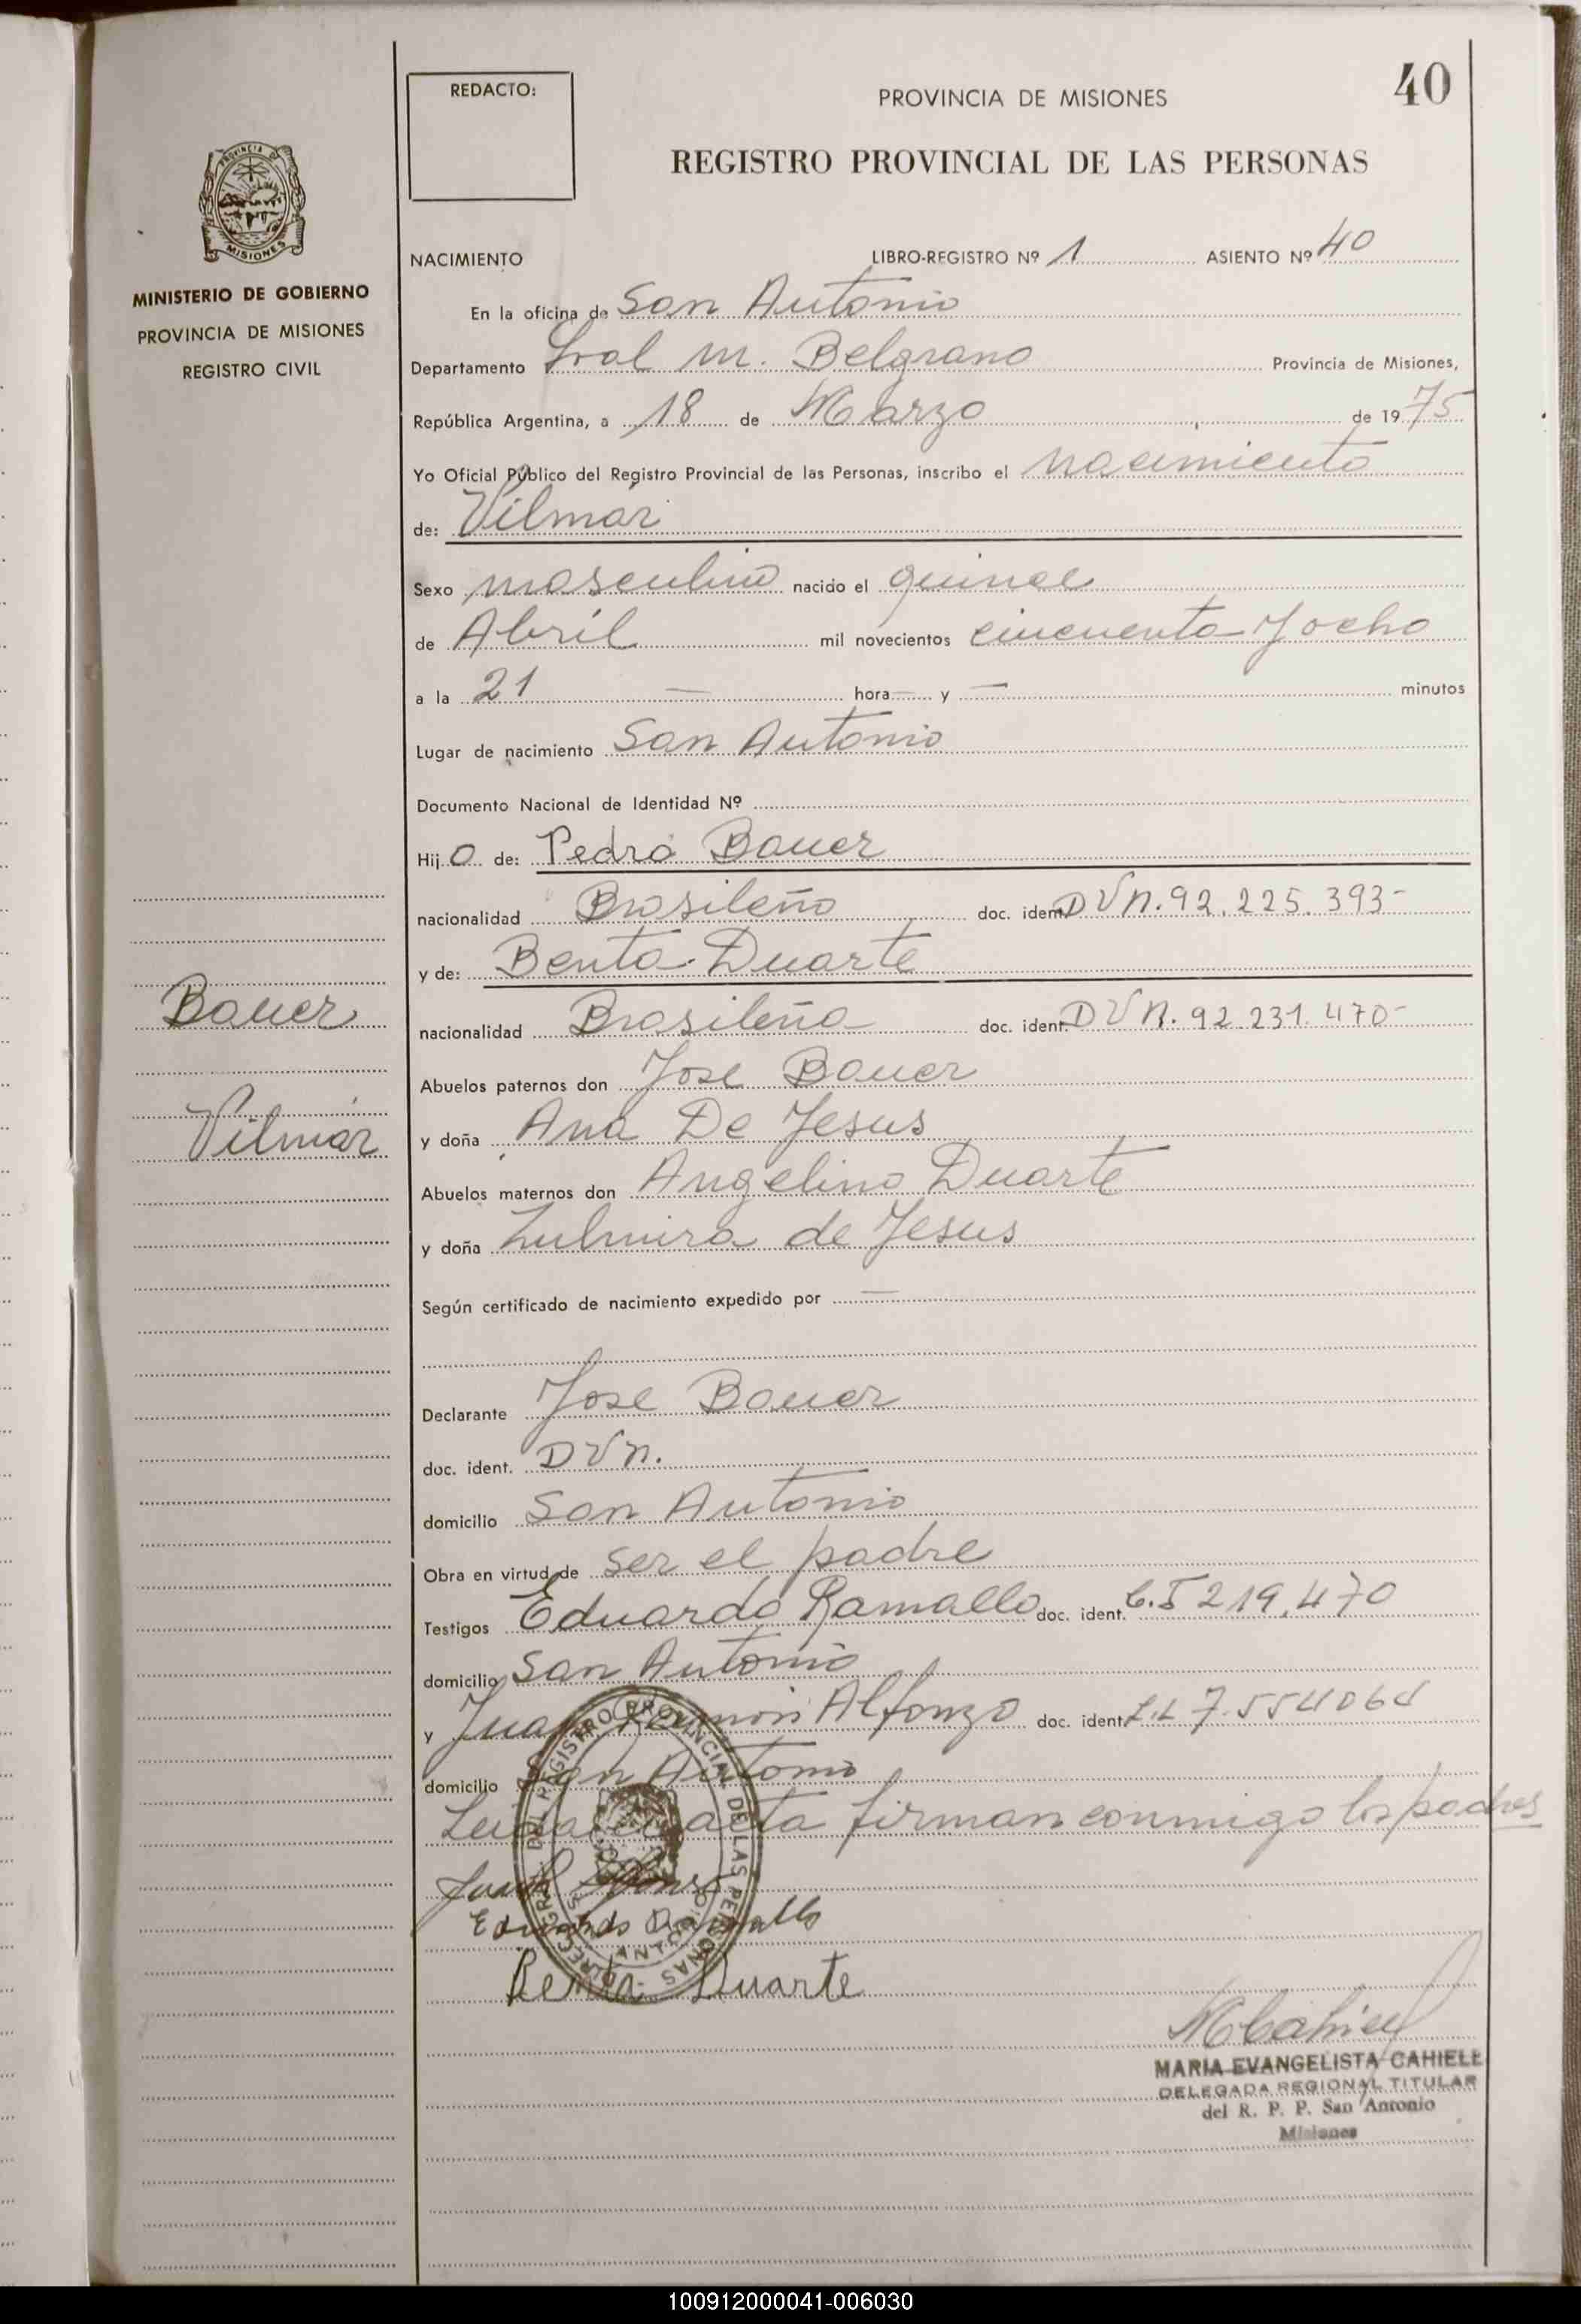 40
REDACTO:
PROVINCIA DE MISIONES
REGISTRO PROVINCIAL DE LAS PERSONAS
PROVINCIA DE
MISIONES
MINISTERIO DE GOBIERNO
PROVINCIA DE MISIONES
REGISTRO CIVIL
NACIMIENTO LIBRO-REGISTRO Nº 1 ASIENTO Nº 40
En la oficina de San Antonio
Departamento Gral M. Belgrano Provincia de Misiones,
República Argentina, a 18 de Marzo de 1975
Yo Oficial Público del Registro Provincial de las Personas, inscribo el nacimiento
de: Vilmar
Sexo masculino nacido el quince
de Abril mil novecientos cincuenta y ocho
a la 21 — hora — y — minutos
Lugar de nacimiento San Antonio
Documento Nacional de Identidad Nº
Hijo de: Pedro Bauer
nacionalidad Brasileño doc. ident. D V N. 92.225.393-
y de: Benta Duarte
Bauer
nacionalidad Brasileña doc. ident. D V N. 92.231.470-
Abuelos paternos don Jose Bauer
Vilmar
y doña Ana De Jesus
Abuelos maternos don Angelino Duarte
y doña Zulmira de Jesus
Según certificado de nacimiento expedido por —
Declarante Jose Bauer
doc. ident. D V N.
domicilio San Antonio
Obra en virtud de ser el padre
Testigos Eduardo Ramallo doc. ident. C.I 219.470
domicilio San Antonio
y Juan Ramon Alfonzo doc. ident. L.E 7.554064
domicilio San Antonio
Leida el acta firman conmigo los padres
Eduardo Ramallo
Benta Duarte
MARIA EVANGELISTA CAHIELL
DELEGADA REGIONAL TITULAR
del R. P. P. San Antonio
Misiones
100912000041-006030